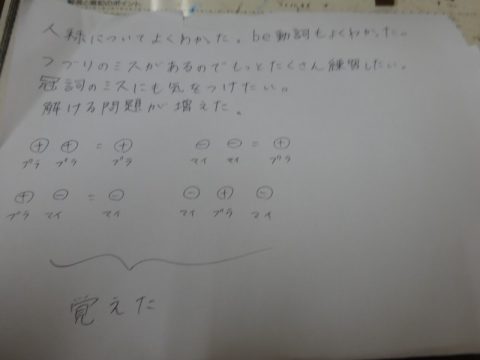 人称についてよくわかった。be動詞もよくわかった。
つづりのミスがあるのでもっとたくさん練習したい。
冠詞のミスにも気をつけたい。
解ける問題が増えた。
⊕ ⊕ = ⊕ ⊖ ⊖ = ⊕
プラ プラ プラ マイ マイ プラ
⊕ ⊖ = ⊖ ⊖ ⊕ ⊖
プラ マイ マイ マイ プラ マイ
覚えた